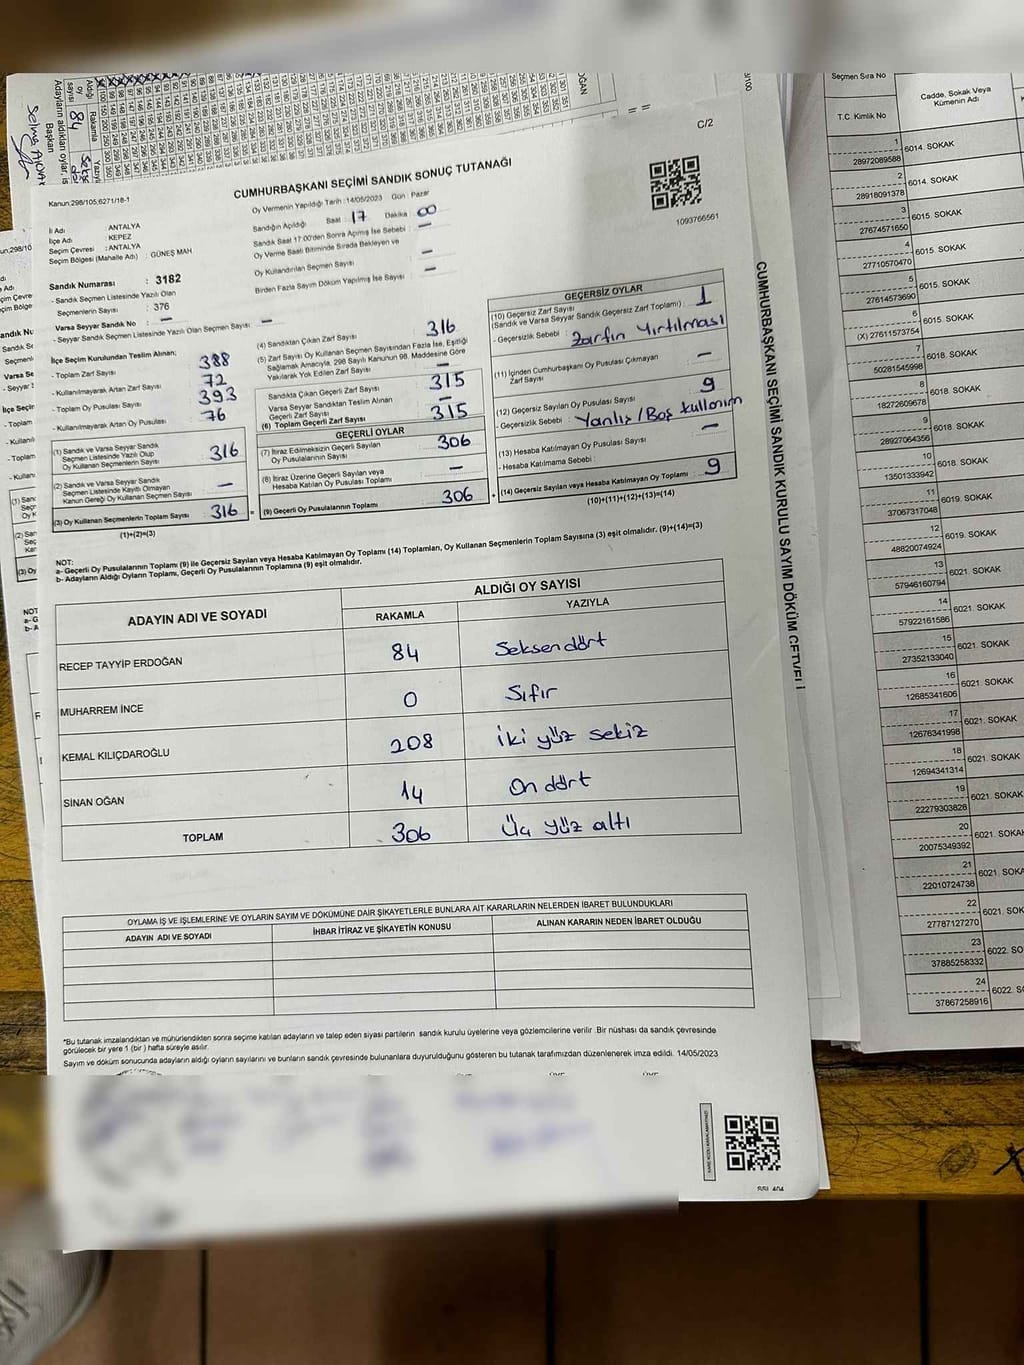 C/2
CUMHURBAŞKANI SEÇİMİ SANDIK SONUÇ TUTANAĞI
1093766561
Kanun:298/105,6271/18-1
İl Adı : ANTALYA
İlçe Adı : KEPEZ
Seçim Çevresi : ANTALYA
Seçim Bölgesi (Mahalle Adı) : GÜNEŞ MAH
Sandık Numarası : 3182
- Sandık Seçmen Listesinde Yazılı Olan
Seçmenlerin Sayısı : 376
Varsa Seyyar Sandık No : —
- Seyyar Sandık Seçmen Listesinde Yazılı Olan Seçmen Sayısı : —
Oy Vermenin Yapıldığı Tarih : 14/05/2023 Gün : Pazar
Sandığın Açıldığı Saat : 17 Dakika : 00
Sandık Saat 17.00'den Sonra Açılmış İse Sebebi : —
Oy Verme Saati Bitiminde Sırada Bekleyen ve
Oy Kullandırılan Seçmen Sayısı —
Birden Fazla Sayım Döküm Yapılmış İse Sayısı : —
İlçe Seçim Kurulundan Teslim Alınan;
- Toplam Zarf Sayısı 388
- Kullanılmayarak Artan Zarf Sayısı 72
- Toplam Oy Pusulası Sayısı 393
- Kullanılmayarak Artan Oy Pusulası 76
(1) Sandık ve Varsa Seyyar Sandık
Seçmen Listesinde Yazılı Olup
Oy Kullanan Seçmenlerin Sayısı 316
(2) Sandık ve Varsa Seyyar Sandık
Seçmen Listesinde Kayıtlı Olmayan
Kanun Gereği Oy Kullanan Seçmen Sayısı —
(3) Oy Kullanan Seçmenlerin Toplam Sayısı 316
(1)+(2)=(3)
(4) Sandıktan Çıkan Zarf Sayısı 316
(5) Zarf Sayısı Oy Kullanan Seçmen Sayısından Fazla İse, Eşitliği
Sağlamak Amacıyla, 298 Sayılı Kanunun 98. Maddesine Göre
Yakılarak Yok Edilen Zarf Sayısı —
Sandıkta Çıkan Geçerli Zarf Sayısı 315
Varsa Seyyar Sandıktan Teslim Alınan
Geçerli Zarf Sayısı —
(6) Toplam Geçerli Zarf Sayısı 315
GEÇERLİ OYLAR
(7) İtiraz Edilmeksizin Geçerli Sayılan
Oy Pusulalarının Sayısı 306
(8) İtiraz Üzerine Geçerli Sayılan veya
Hesaba Katılan Oy Pusulası Toplamı —
(9) Geçerli Oy Pusulalarının Toplamı 306
GEÇERSİZ OYLAR
(10) Geçersiz Zarf Sayısı
(Sandık ve Varsa Seyyar Sandık Geçersiz Zarf Toplamı) : 1
- Geçersizlik Sebebi : Zarfın Yırtılması
(11) İçinden Cumhurbaşkanı Oy Pusulası Çıkmayan
Zarf Sayısı —
(12) Geçersiz Sayılan Oy Pusulası Sayısı 9
- Geçersizlik Sebebi : Yanlış / Boş kullanım
(13) Hesaba Katılmayan Oy Pusulası Sayısı —
- Hesaba Katılmama Sebebi :
(14) Geçersiz Sayılan veya Hesaba Katılmayan Oy Toplamı 9
(10)+(11)+(12)+(13)=(14)
NOT:
a- Geçerli Oy Pusulalarının Toplamı (9) ile Geçersiz Sayılan veya Hesaba Katılmayan Oy Toplamı (14) Toplamları, Oy Kullanan Seçmenlerin Toplam Sayısına (3) eşit olmalıdır. (9)+(14)=(3)
b- Adayların Aldığı Oyların Toplamı, Geçerli Oy Pusulalarının Toplamına (9) eşit olmalıdır.
ADAYIN ADI VE SOYADI ALDIĞI OY SAYISI
RAKAMLA YAZIYLA
RECEP TAYYİP ERDOĞAN 84 Seksen dört
MUHARREM İNCE 0 Sıfır
KEMAL KILIÇDAROĞLU 208 iki yüz sekiz
SİNAN OĞAN 14 On dört
TOPLAM 306 Üç yüz altı
OYLAMA İŞ VE İŞLEMLERİNE VE OYLARIN SAYIM VE DÖKÜMÜNE DAİR ŞİKAYETLERLE BUNLARA AİT KARARLARIN NELERDEN İBARET BULUNDUKLARI
ADAYIN ADI VE SOYADI İHBAR İTİRAZ VE ŞİKAYETİN KONUSU ALINAN KARARIN NEDEN İBARET OLDUĞU
*Bu tutanak imzalandıktan ve mühürlendikten sonra seçime katılan adayların ve talep eden siyasi partilerin sandık kurulu üyelerine veya gözlemcilerine verilir. Bir nüshası da sandık çevresinde
görülecek bir yere 1 (bir) hafta süreyle asılır.
Sayım ve döküm sonucunda adayların aldığı oyların sayılarını ve bunların sandık çevresinde bulunanlara duyurulduğunu gösteren bu tutanak tarafımızdan düzenlenerek imza edildi. 14/05/2023
CUMHURBAŞKANI SEÇİMİ SANDIK KURULU SAYIM DÖKÜM CETVELİ
Seçmen Sıra No
T.C. Kimlik No
Cadde, Sokak Veya
Kümenin Adı
1
28972089588 6014. SOKAK
2
28918091378 6014. SOKAK
3
27674571650 6015. SOKAK
4
27710570470 6015. SOKAK
5
27614573690 6015. SOKAK
6
(X) 27611573754 6015. SOKAK
7
50281545998 6018. SOKAK
8
18272609678 6018. SOKAK
9
28927064356 6018. SOKAK
10
13501333942 6018. SOKAK
11
37067317048 6019. SOKAK
12
48820074924 6019. SOKAK
13
57946160794 6021. SOKAK
14
57922161586 6021. SOKAK
15
27352133040 6021. SOKAK
16
12685341606 6021. SOKAK
17
12676341998 6021. SOKAK
18
12694341314 6021. SOKAK
19
22279303828 6021. SOKAK
20
20075349392 6021. SOKAK
21
22010724738 6021. SOKA
22
27787127270 6021. SOK
23
37885258332 6022. SO
24
37867258916 6022. S